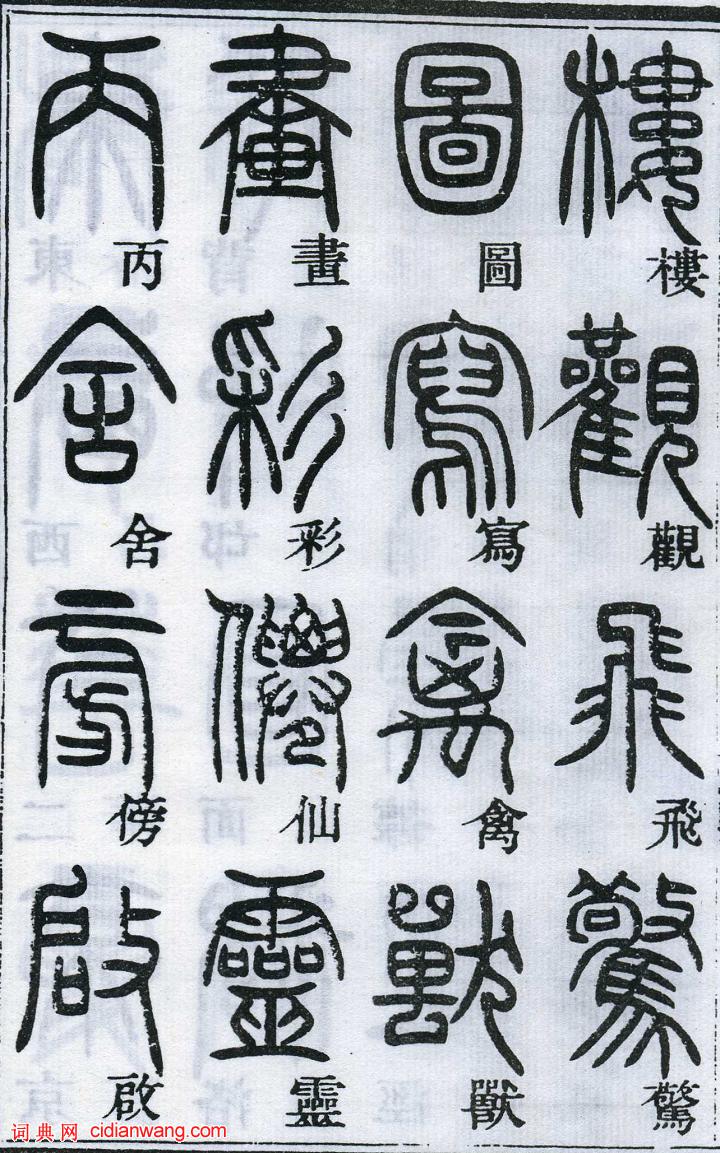 樓觀飛驚
圖寫禽獸
畫彩仙靈
丙舍傍啟
词典网 cidianwang.com